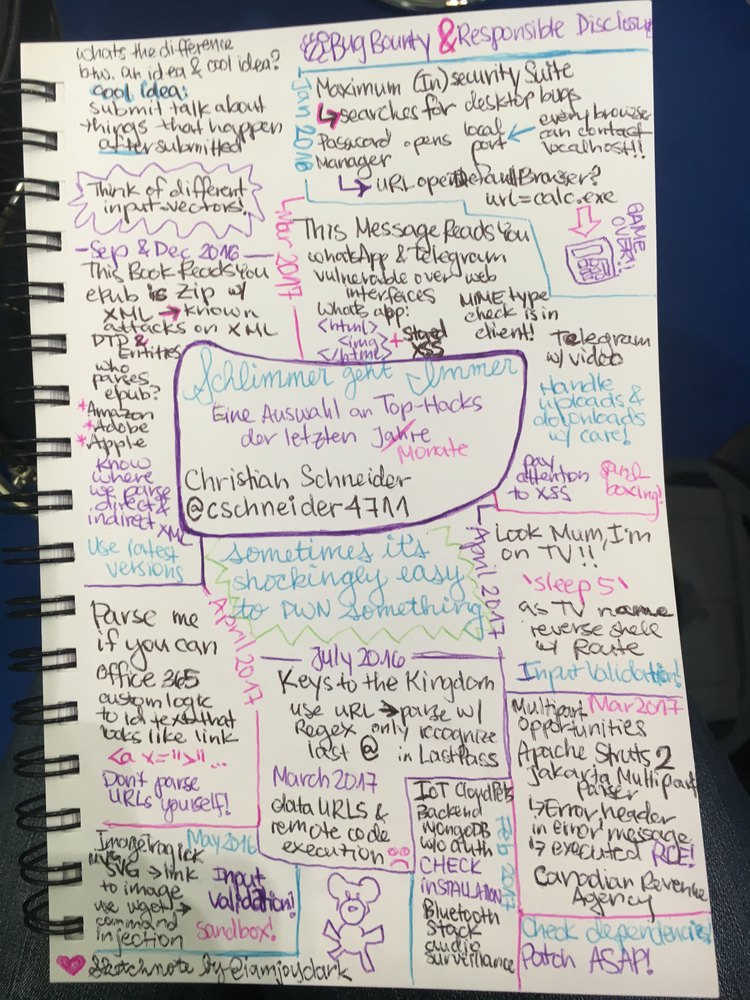 whats the difference
btw. an idea & cool idea?
cool idea:
submit talk about
things that happen
after submitted
Think of different
input-vectors!
Sep & Dec 2016
This Book Reads You
epub is zip w/
XML → known
attacks on XML
DTD &
Entities
who
parses
epub?
* Amazon
* Adobe
* Apple
know
where
we parse
direct &
indirect XML
Use latest
versions
Bug Bounty & Responsible Disclosure
Jan 2016
Maximum (In)security Suite
↳ searches for desktop bugs
Password opens local
Manager port
← every browser
can contact
localhost!!
↳ URL open Default Browser?
url=calc.exe
GAME
OVER!!
Mar 2017
This Message Reads You
whatsApp & telegram
vulnerable over web
interfaces
whats app:
<html>
<img>
</html>
+ Stored
XSS
MIME type
check is in
client!
Telegram
w/ video
Handle
uploads &
downloads
w/ care!
pay
attention
to XSS
sand
boxing!
Schlimmer geht Immer
Eine Auswahl an Top-Hacks
der letzten Jahre
Monate
Christian Schneider
@cschneider4711
sometimes it's
shockingly easy
to PWN something
April 2017
Look Mum, I'm
on TV!!
`sleep 5`
as TV name
reverse shell
w/ Route
Input Validation!
April 2017
Parse me
if you can
Office 365
custom logic
to id text that
looks like link
<a x=">"...
Don't parse
URLs yourself!
July 2016
Keys to the Kingdom
use URL → parse w/
Regex only recognize
last @ in LastPass
March 2017
data URLS &
remote code
execution
May 2016
ImageTragick
SVG → link
to image
use wget →
command
injection
Input
Validation!
sandbox!
Feb 2017
IoT CloudPets
Backend
MongoDB
w/o auth
CHECK
inSTALLATION
Bluetooth
Stack
audio
surveillance
Mar 2017
Multipart
opportunities
Apache Struts 2
Jakarta Multipart
Parser
↳ Error header
in error message
↳ executed RCE!
Canadian Revenue
Agency
Check dependencies!
Patch ASAP!
Sketchnote by @iamjoyclark